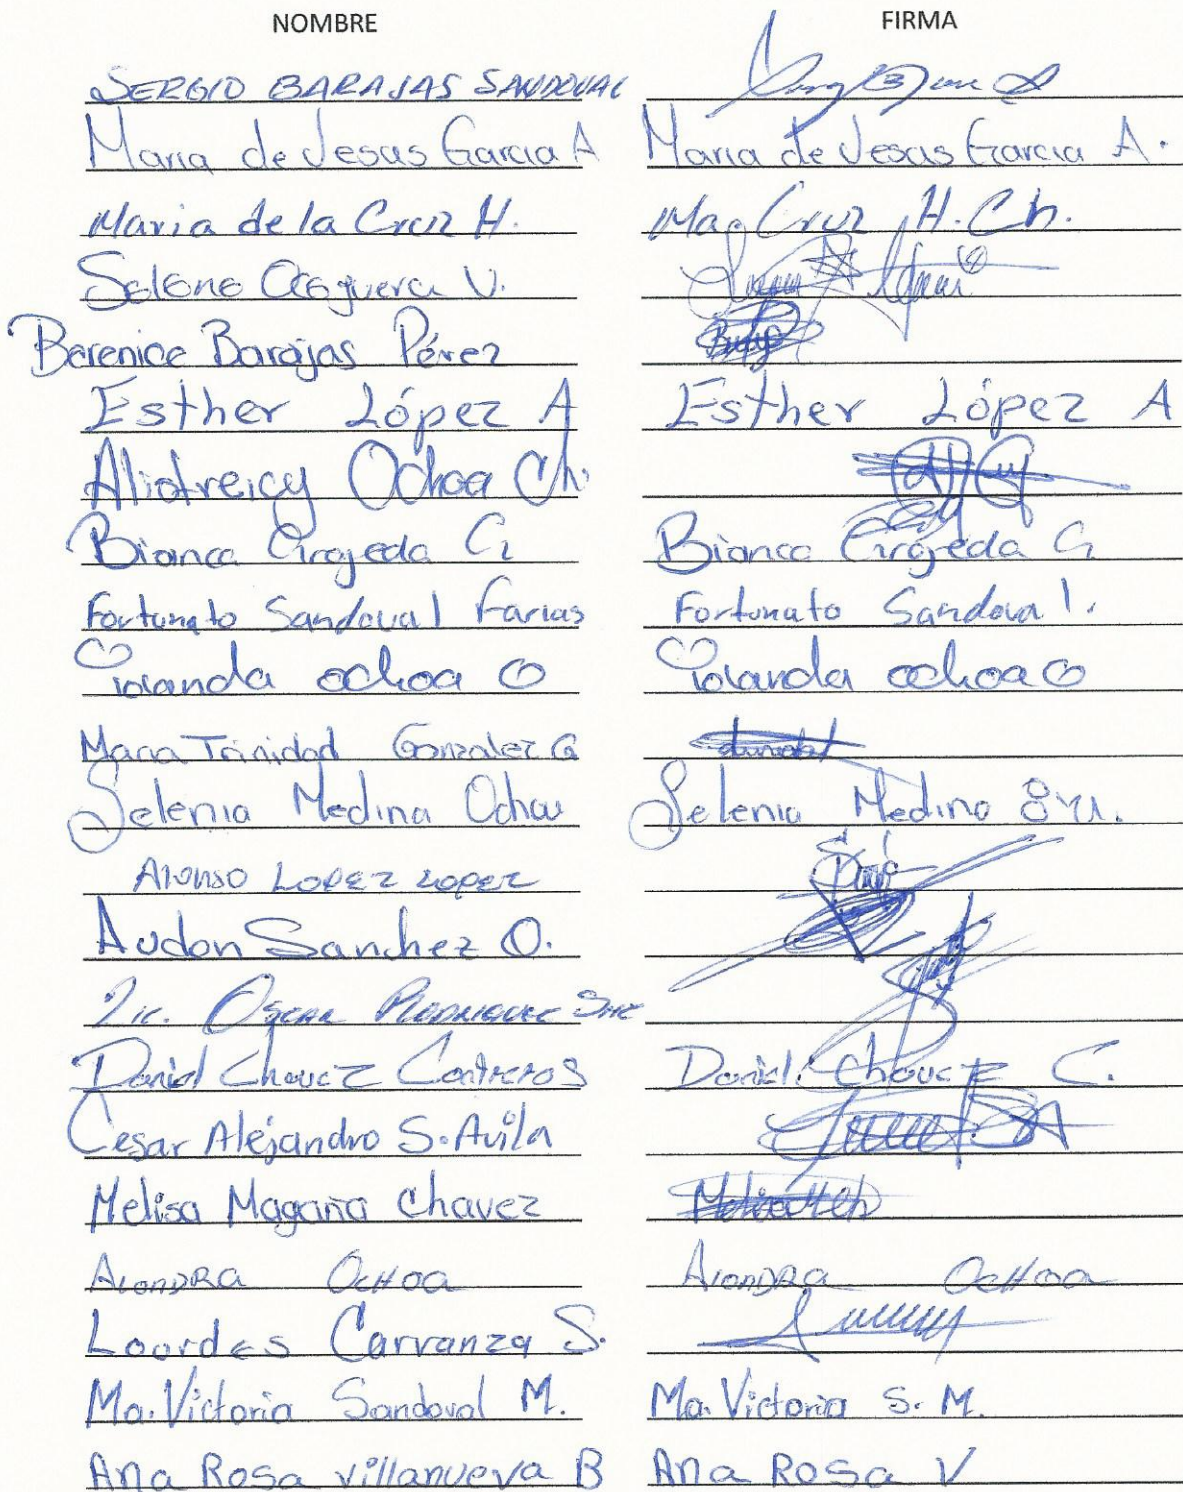 NOMBRE FIRMA
SERGIO BARAJAS SANDOVAL
Maria de Jesus Garcia A Maria de Jesus Garcia A.
Maria de la Cruz H. Ma. Cruz H. Ch.
Selene Oseguera V.
Berenice Barajas Pérez
Esther López A Esther López A
Aliatreicy Ochoa Ch.
Bianca Grajeda G Bianca Grajeda G
Fortunato Sandoval Farias Fortunato Sandoval.
Yolanda ochoa O Yolanda ochoa O
Maria Trinidad Gonzalez G
Selenia Medina Ochoa Selenia Medina
Alonso Lopez Lopez
Audon Sanchez O.
Lic. Oscar
Daniel Chavez Contreras Daniel Chavez C.
Cesar Alejandro S. Avila
Melisa Magaña Chavez
ALONDRA OCHOA ALONDRA OCHOA
Lourdes Carranza S.
Ma. Victoria Sandoval M. Ma. Victoria S. M.
Ana Rosa villanueva B Ana Rosa V